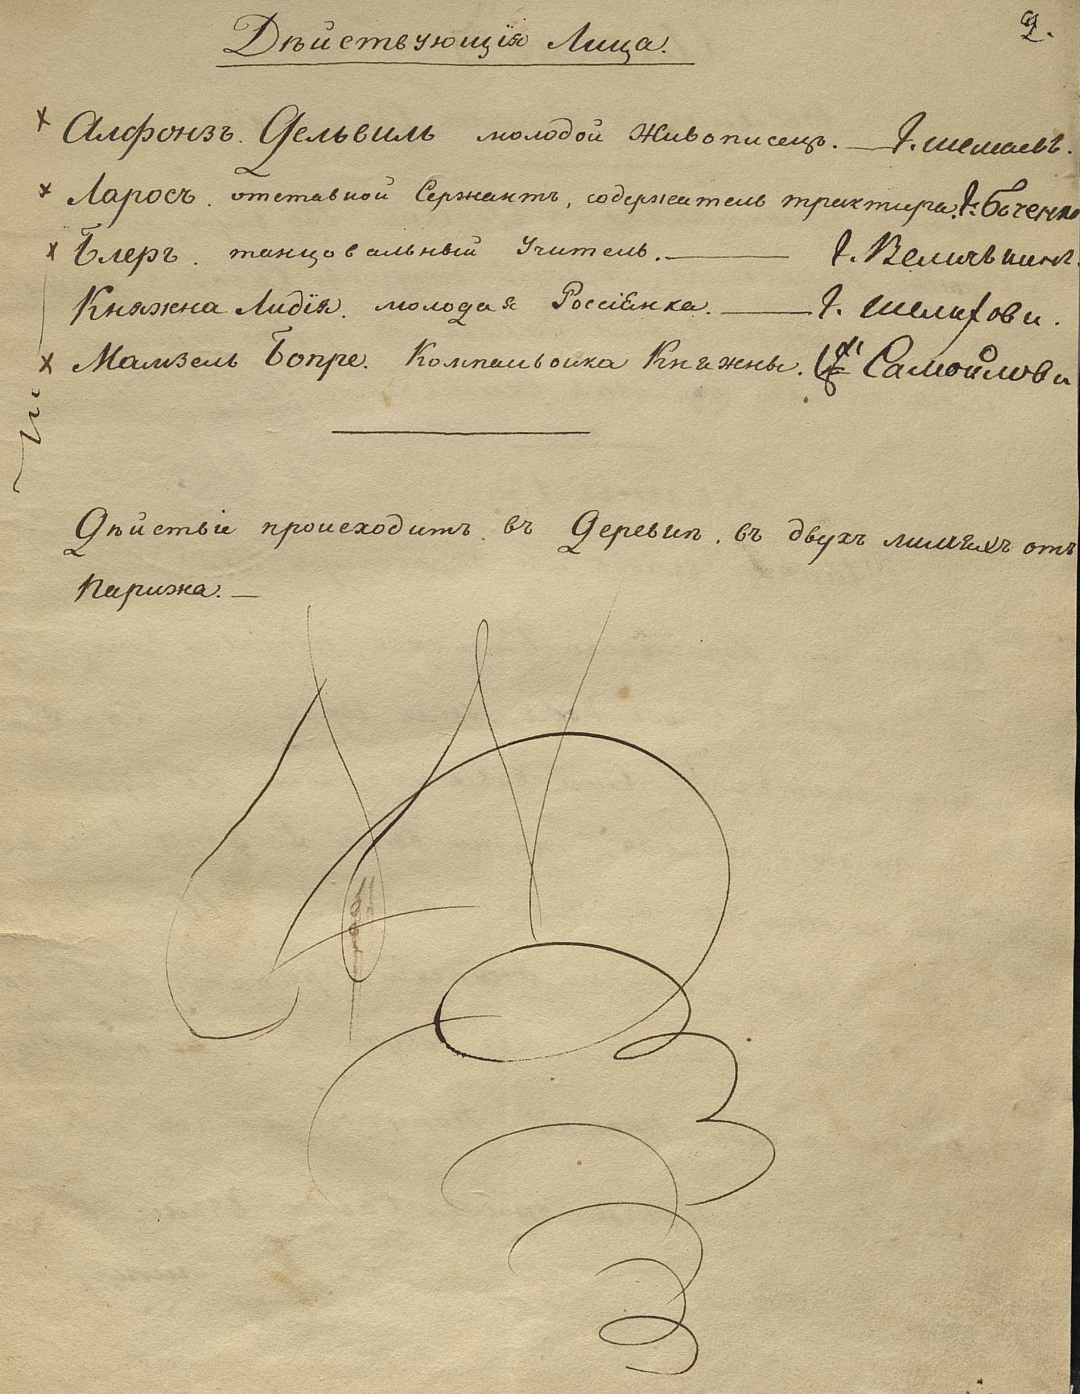 2.
Дѣйствующія Лица.
Алфонзъ Дельвиль молодой Живописецъ. — Г.
Ларосъ. отставной Сержантъ, содержатель трактира. Г. Боченко
Блеръ. танцовальный Учитель. — Г. Величкинъ.
Княжна Лидія. молодая Россіянка. — Г. Шелехова.
Мамзель Бопре. Компаньонка Княжны. Самойлова
Дѣйствіе происходитъ въ Деревнѣ. въ двухъ миляхъ отъ
Парижа. —